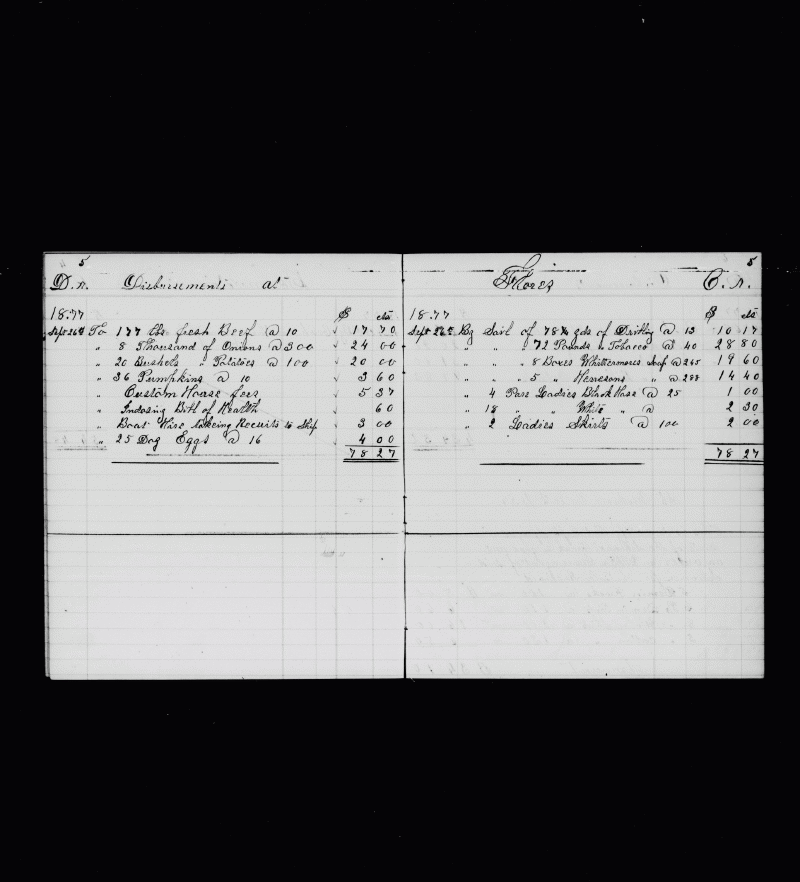 5
D.r. Disbursements at
1877 $ cts
Sept 26th To 177 lbs fresh Beef @ 10 17 70
" 8 Thousand of Onions @ 300 24 00
" 20 Bushels " Potatoes @ 100 20 00
" 36 Pumpkins @ 10 3 60
" Custom House fees 5 37
" Indosing Bill of Health 60
" Boat Hire takeing Recruits to Ship 3 00
" 25 Dog Eggs @ 16 4 00
78 27
Flores 5
C.r.
1877 $ cts
Sept 26th By Sail of 78¼ yds of @ 13 10 17
" " " 72 Pounds " Tobacco @ 40 28 80
" " " 8 Boxes Whittemores Soap @ 245 19 60
" " " 5 " " @ 288 14 40
" 4 Pare Ladies Black Hose @ 25 1 00
" 18 " " White " @ 2 30
" 2 Ladies Skirts @ 100 2 00
78 27